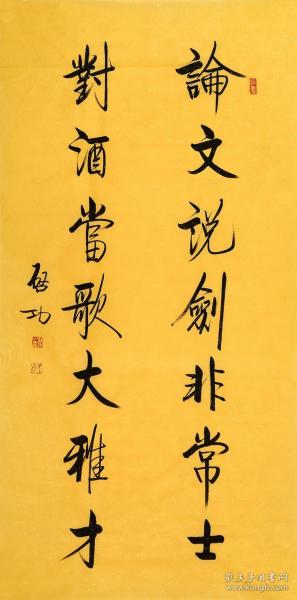 論文说劍非常士
對酒當歌大雅才
啓功
孔夫子旧书网